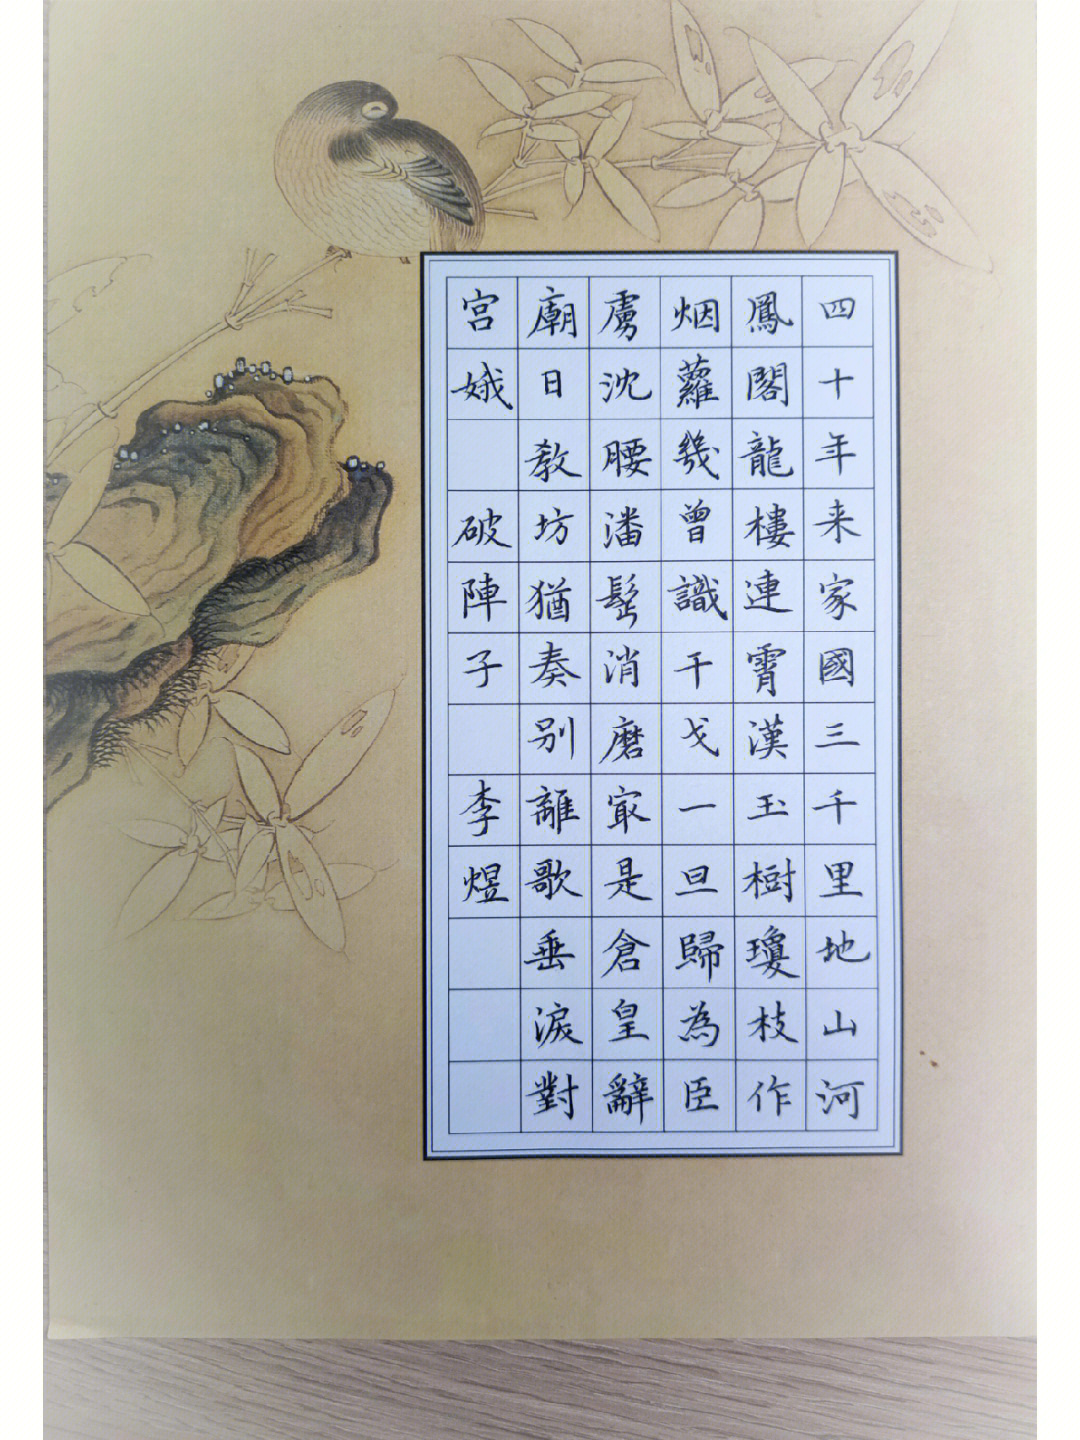 四十年来家國三千里地山河
鳳閣龍樓連霄漢玉樹瓊枝作
烟蘿幾曾識干戈一旦歸為臣
虜沈腰潘髩消磨冣是倉皇辭
廟日教坊猶奏别離歌垂淚對
宮娥 破陣子 李煜